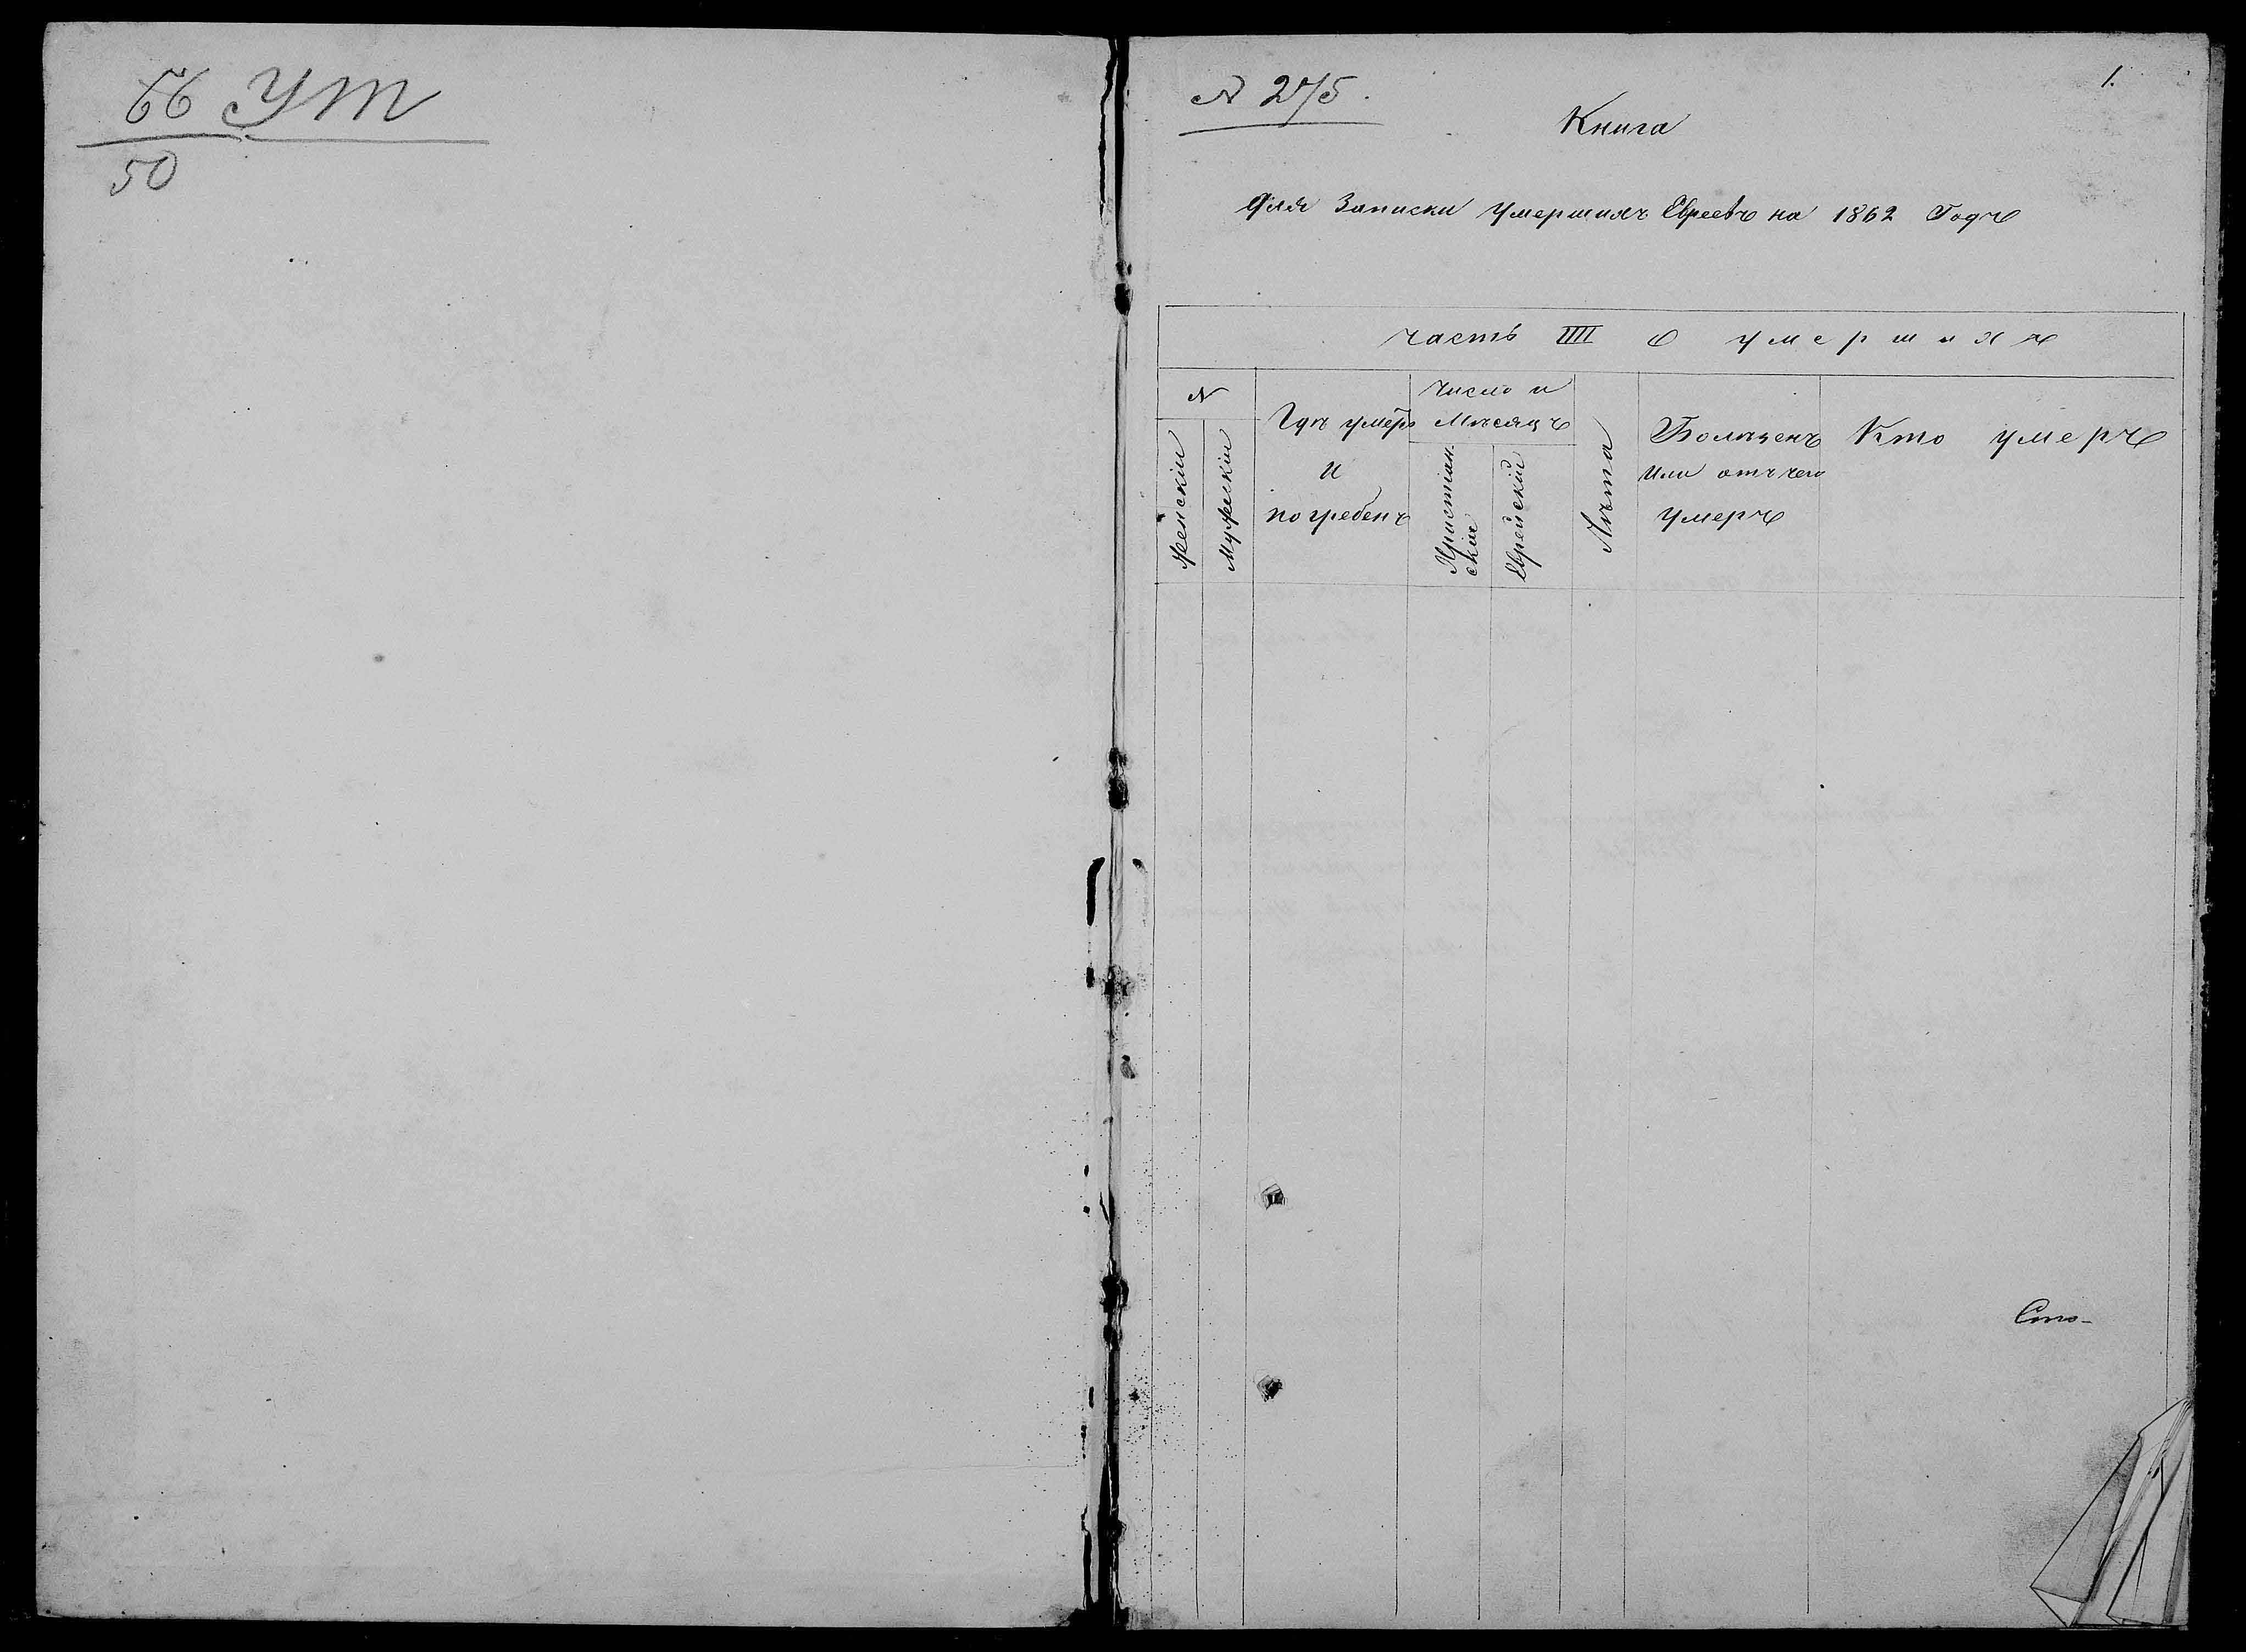 66 УТ
50
№ 275.
1.
Книга
Для Записки умершихъ Евреевъ на 1862 Годъ
Часть IIII О умершихъ
N
Женскій
Мужескій
Гдѣ умеръ
и
погребенъ
Число и
Мѣсяцъ
Христіан
скіе
Еврейскій
Лѣта
Болѣзень
Или отъ чего
умеръ
Кто умеръ